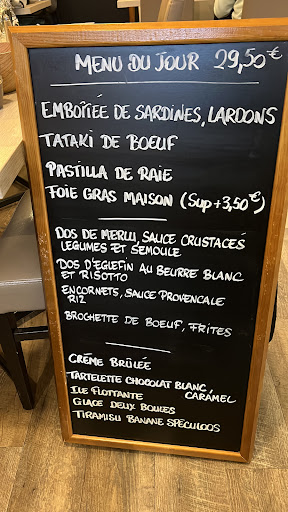 MENU DU JOUR 29,50€
EMBOÎTÉE DE SARDINES, LARDONS
TATAKI DE BOEUF
PASTILLA DE RAIE
FOIE GRAS MAISON (Sup +3,50€)
DOS DE MERLU, SAUCE CRUSTACÉS
LEGUMES ET SEMOULE
DOS D'EGLEFIN AU BEURRE BLANC
ET RISOTTO
ENCORNETS, SAUCE PROVENCALE
RIZ
BROCHETTE DE BOEUF, FRITES
CRÈME BRÛLÉE
TARTELETTE CHOCOLAT BLANC,
CARAMEL
ILE FLOTTANTE
GLACE DEUX BOULES
TIRAMISU BANANE SPECULOOS